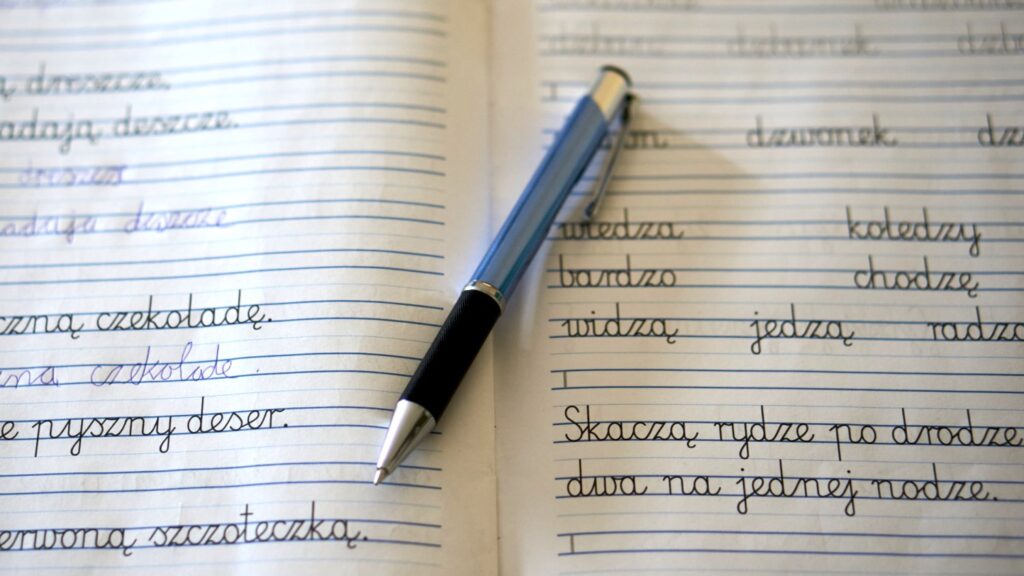 ą dreszcze.
adają deszcze.
adają deszcze
czną czekoladę.
czekoladę.
e pyszny deser.
erwoną szczoteczką.
dzbanek
dzwonek dz
wiedza koledzy
bardzo chodzę
widzą jedzą radzą
Skaczą rydze po drodze
dwa na jednej nodze.